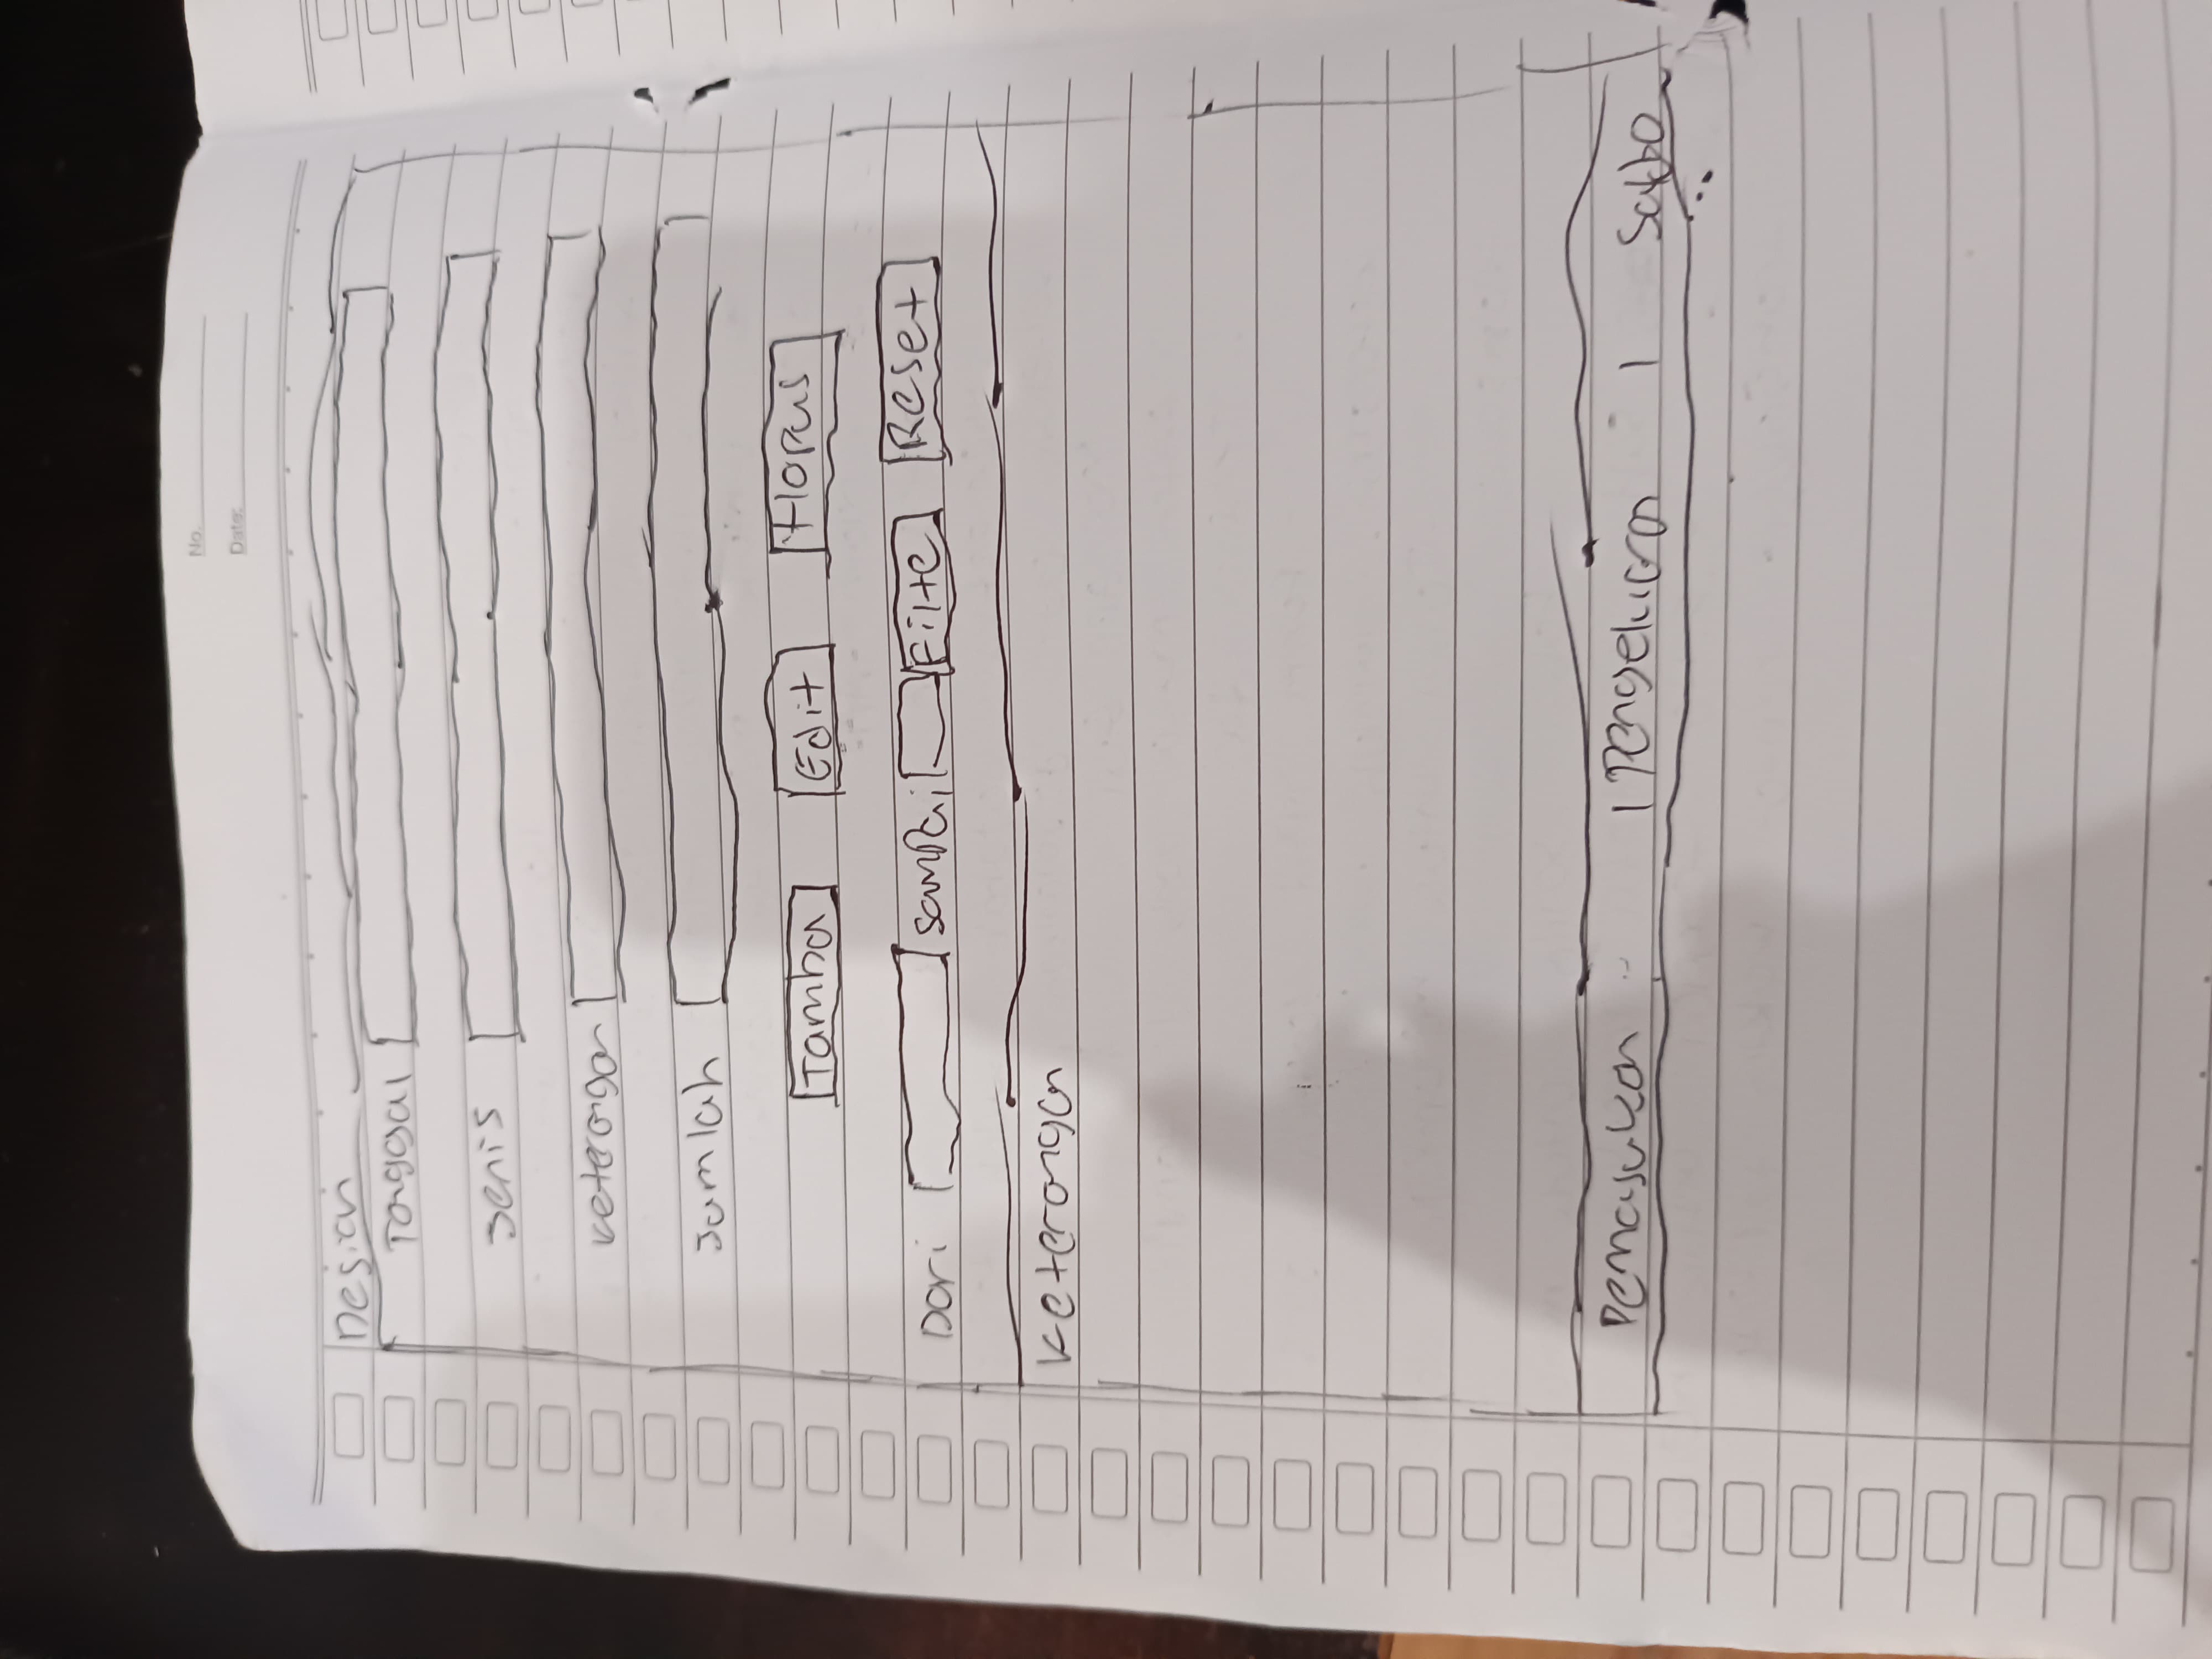 No.
Date:
Design
Tanggal
Jenis
Keterangan
Jumlah
Tamba Edit Hapus
Dari sampai Filte Reset
Keterangan
Pemasukan | Pengeluaran |